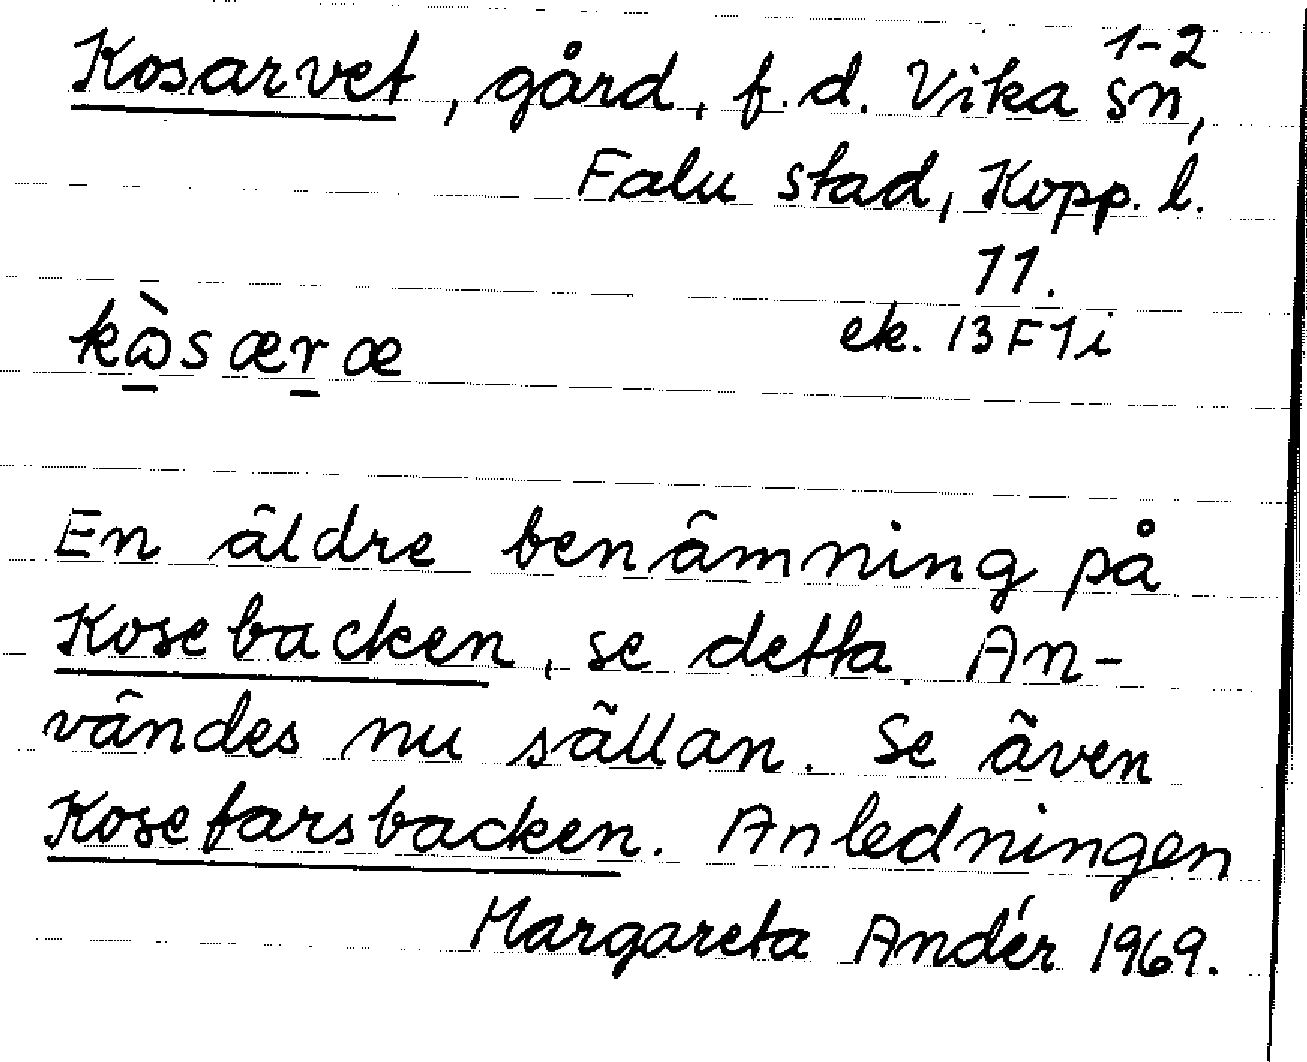 1-2
Kosarvet, gård, f.d. Vika sn,
Falu stad, Kopp. l.
11.
ek. 13 F 1 i
En äldre benämning på
Kosebacken, se detta. An-
vändes nu sällan. Se även
Kosefarsbacken. Anledningen
Margareta Andér 1969.